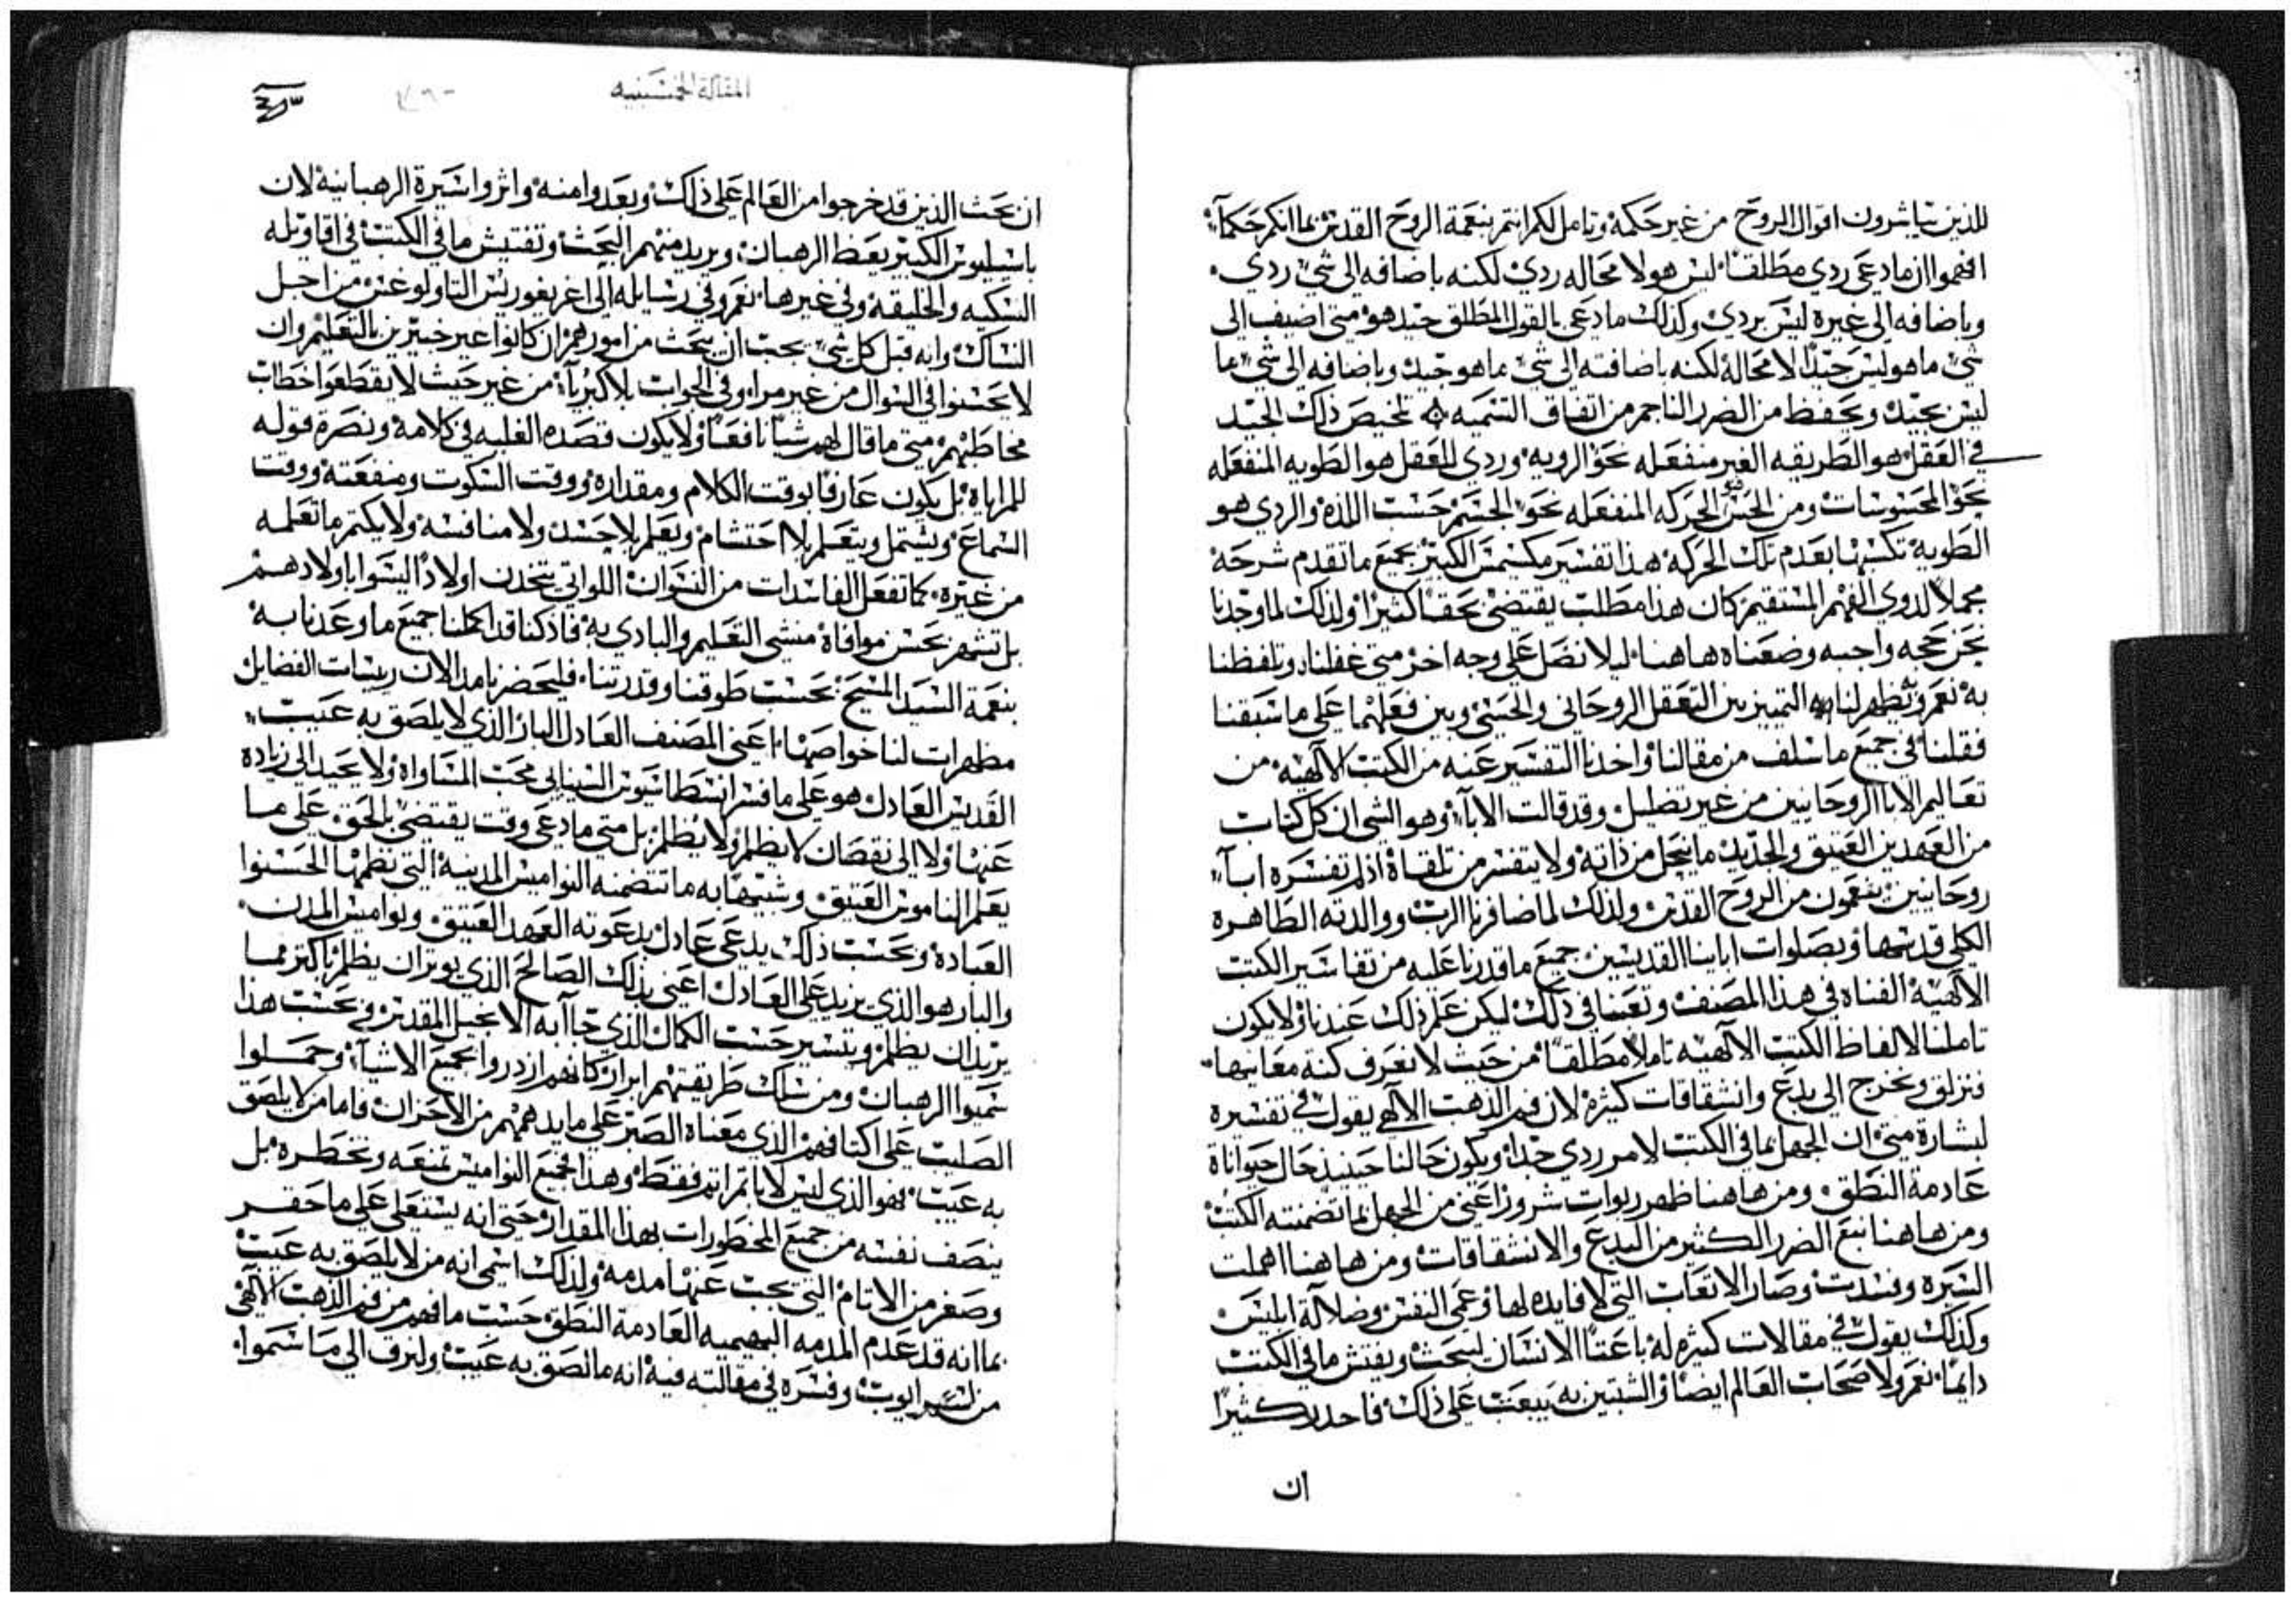 للذين يباشرون اقوال الروح من غير حكمه وتامل لكم انتم بنعمة الروح القدس بما انكم حكمآء
افهموا ان ما دعى ردي مطلقا ليس هو لا محاله ردي لكنه باضافه الى شي ردي
وباضافه الى غيره ليس بردي وكذلك ما دعى بالقول المطلق جيد هو متى اضيف الى
شي ما هو ليس جيدا لا محالة لكنه باضافته الى شي ما هو جيد وباضافه الى شي ما
ليس بجيد ويحفظ من الضرر الناجم من اتفاق التسميه تلخيص ذلك الجيد
في العقل هو الطريقه الغير منفعله نحو الرويه وردي للعقل هو الطويه المنفعله
نحو المحسوسات ومن الحس الحركه المنفعله نحو الجسم حسب اللذه والردي هو
الطوية تكسبها بعدم تلك الحركه هذا تفسير مكسيمس الكبير بجميع ما تقدم شرحه
مجملا لذوي الفهم المستقيم كان هذا مطلب يقتضي بحثا كثيرا ولذلك لما وجدنا
نحن حجه واجبه وضعناه هاهنا ليلا نضل على وجه اخر متى غفلنا وتلفظنا
به نعم ويظهر لنا التمييز بين التعقل الروحاني والحسي وبين فعلهما على ما سبقنا
فقلنا في جميع ما سلف من مقالنا واخدنا التفسير عنه من الكتب الالهيه من
تعاليم الابا الروحانيين من غير تطليل وقد قالت الاباء وهو الشي ان كل كتاب
من العهدين العتيق والجديد ما ينحل من ذاته ولا يتفسر من تلقاة اذ لم تفسره ابآء
روحانيين ينعمون من الروح القدس ولذلك لما ضافرنا الرب ووالدته الطاهره
الكلي قدسها وبصلوات اباينا القديسين جميع ما قدرنا عليه من تفاسير الكتب
الالهية الفناه في هذا المصنف وتعبنا في ذلك ليكن علم ذلك عندنا ولا يكون
تاملنا لالفاظ الكتب الالهيه تاملا مطلقا من حيث لا نعرف كنة معانيها
فنزلق ونخرج الى بدع وانشقاقات كثيرة لان فم الذهب الالهي يقول في تفسيره
لبشارة متى ان الجهل بما في الكتب لامر ردي جدا ويكون حالنا حينيذ حال حيواناة
عادمة النطق ومن هاهنا ظهر ربوات شرور اعني من الجهل بما تضمنته الكتب
ومن هاهنا نبع الضرر الكثير من البدع والانشقاقات ومن هاهنا اهملت
السيره وفسدت وصار الاتعاب التي لا فايده لها وعمى النفس وضلالة ابليس
وكذلك يقول في مقالات كثيره له باعثا الانسان ليبحث ويفتش ما في الكتب
دايما نعم ولاصحاب العالم ايضا والشبتين به يبعث على ذلك فاحدر كثيرا
ان
المقالة الخمسينيه
ان بحث الذين قد خرجوا من العالم على ذلك وبعدوا منه واثروا سيرة الرهبانية لان
باسيليوس الكبير يعظ الرهبان ويريد منهم البحث وتفتيش ما في الكتب في اقاويله
النسكيه والخليقة وفي غيرها نعم وفي رسايله الى اغريغوريس التاولوغس من اجل
النساك وانه قبل كل شي يجب ان يبحث من امورهم ان كانوا غير خبيرين بالتعليم وان
لا يحسنوا في السوال من غير مراء وفي الجواب بلا كبرياء من غير حيث لا يقطعوا خطاب
مخاطبهم متى ما قال لهم شيا نافعا ولا يكون قصده الغلبه في كلامة ونصرة قوله
للمراياة بل يكون عارفا بوقت الكلام ومقداره ووقت السكوت ومنفعته ووقت
السماع ويشتمل ويتعلم بلا احتشام ويعلم بلا حسد ولا منافسه ولا يكتم ما تعلمه
من غيره كما تفعل الفاسدات من النسوان اللواتي يتخذن اولادا ليسوا باولادهم
بل تشهر بحسن موافاة منشي التعليم والبادي به فاذ كنا قد اكملنا جميع ما وعدنا به
بنعمة السيد المسيح بحسب طوقنا وقدرتنا فليحضرنا مد الان ربيسات الفضايل
مظهرات لنا خواصها اعني المصنف العادل البار الذي لا يلصق به عيب
القديس العادل هو على ما فسر انسطاسيوس السينايي محب المساواة ولا يحيد الى زيادة
عنها ولا الى نقصان لا يظلم ولا يُظلم بل متى ما دعى وقت يقتضي بالحق على ما
يعلم الناموس العتيق وشبيها به ما تتضمنه النواميس المدينية التي نظمها الحسنوا
العباده وبحسب ذلك يدعى عادل بدعوته العهد العتيق ونواميس المدن
والبار هو الذي يزيد على العادل اعني بذلك الصالح الذي يوثر ان يظلم اكثر مما
يريد ان يظلم ويتسير حسب الكمال الذي جاآ به الانجيل المقدس فبحسب هذا
سميوا الرهبان ومن سلك طريقتهم ابرار كانهم ازدروا بجميع الاشيآء وحملوا
الصليب على اكتافهم الذي معناه الصبر على ما يدهمهم من الاحزان فاما من لا يلصق
به عيب فهو الذي ليس لا ياثم اثم فقط وهذا فجميع النواميس تمنعه وتحظره بل
ينصف نفسه من جميع المحظورات بهذا المقدار حتى انه يستعلي على ما حقر
وصغر من الاثام التي تجب عنها مدمة ولذلك اسمى انه من لا يلصق به عيب
بما انه قد عدم المدمه البهيميه العادمة النطق حسب ما فهم من فم الذهب الالهي
من تسير ايوب وفسره في مقالته فيه انه ما لصق به عيب ولنرق الى ما سموا